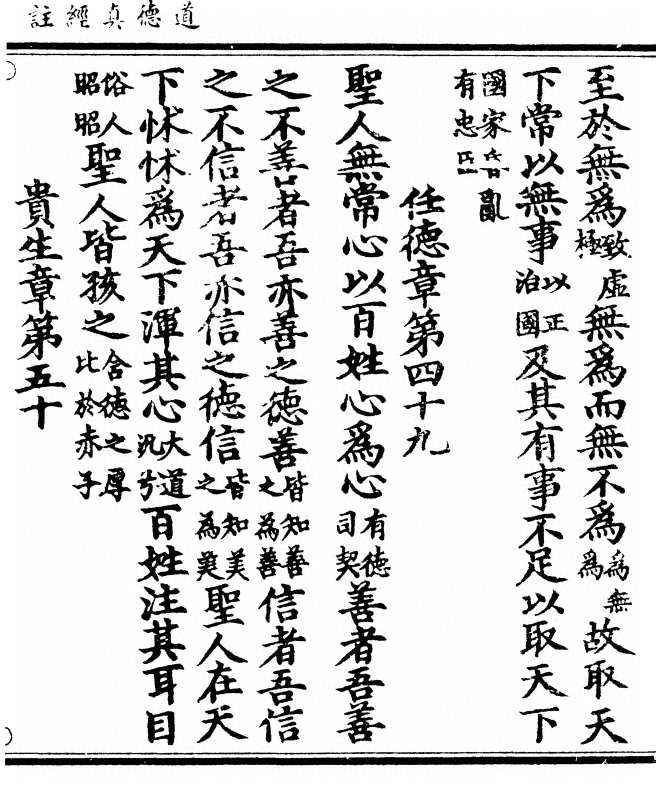 道德真經註
至於無爲致虛極無爲而無不爲爲無爲故取天
下常以無事以正治國及其有事不足以取天下
國家昏亂有忠臣
任德章第四十九
聖人無常心以百姓心爲心有德司契善者吾善
之不善者吾亦善之德善皆知善之為善信者吾信
之不信者吾亦信之德信皆知美之為美聖人在天
下怵怵爲天下渾其心大道汎兮百姓注其耳目
俗人昭昭聖人皆孩之含德之厚比於赤子
貴生章第五十